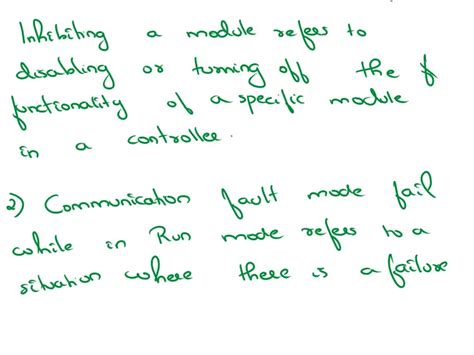 Inhibiting a module refers to
disabling or turning off the f
functionality of a specific module
in a controller.
2) Communication fault mode fail
while in Run mode refers to a
situation where there is a failure